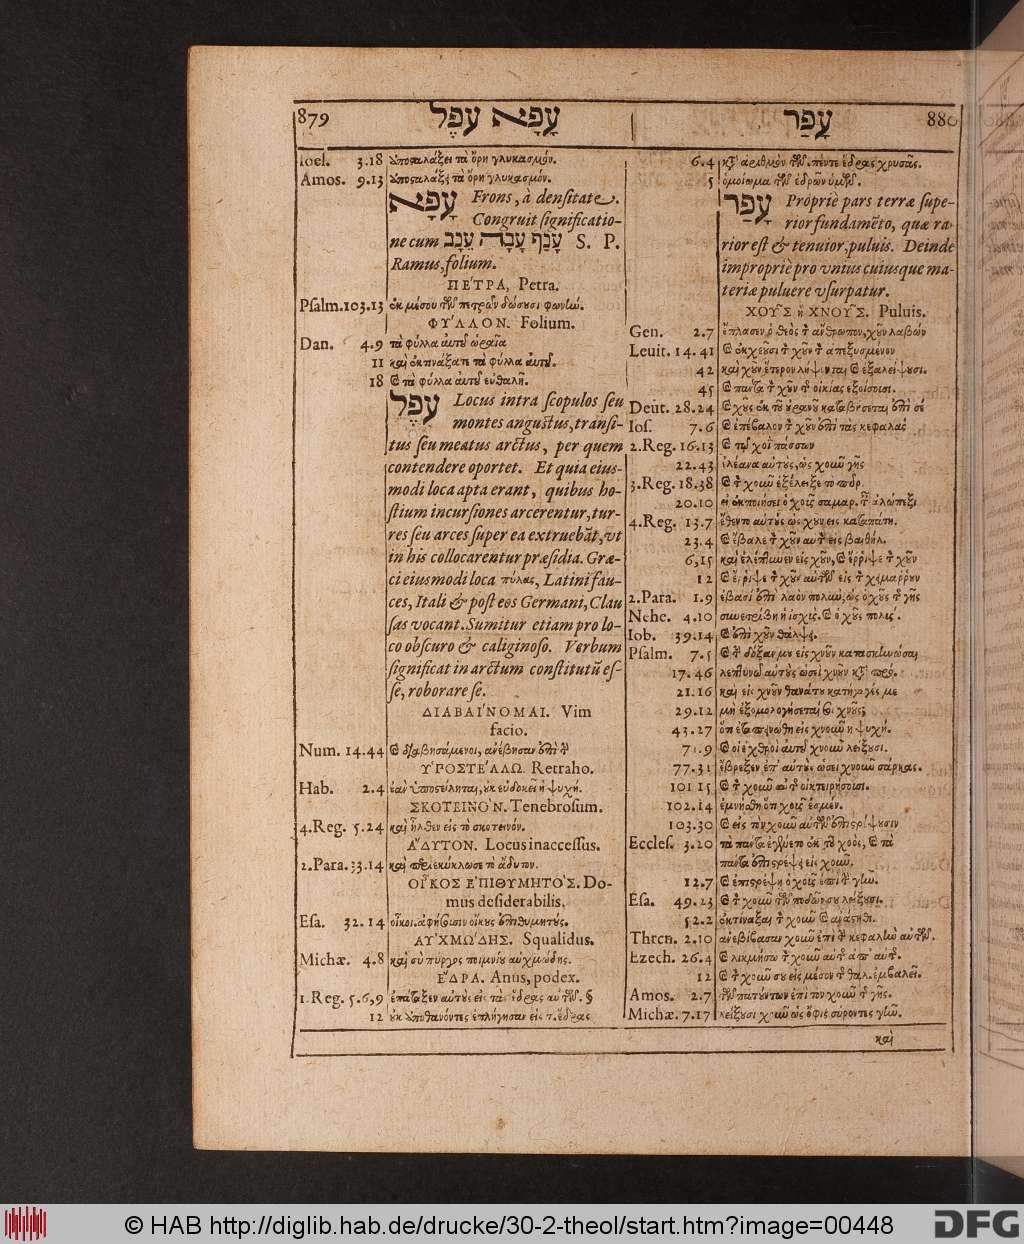 879 עָפָא עפֶל
Ioel. 3.18 ἀποσταλάξει τὰ ὄρη γλυκασμόν.
Amos. 9.13 ἀποσταλάξει τὰ ὄρη γλυκασμόν.
עָפָא Frons, à densitate.
Congruit significatio-
ne cum עָנָף עָבָה עֵנָב S. P.
Ramus, folium.
ΠΕ'ΤΡΑ, Petra.
Psalm. 103.13 ἐκ μέσου τῶν πετρῶν δώσουσι φωνήν.
ΦΥ'ΛΛΟΝ. Folium.
Dan. 4.9 τὰ φύλλα αὐτοῦ ὡραῖα
11 καὶ ἐκτινάξατε τὰ φύλλα αὐτοῦ.
18 καὶ τὰ φύλλα αὐτοῦ εὐθαλῆ.
עֹפֶל Locus intra scopulos seu
montes angustus, transi-
tus seu meatus arctus, per quem
contendere oportet. Et quia eius-
modi loca apta erant, quibus ho-
stium incursiones arcerentur, tur-
res seu arces super ea extruebāt, vt
in his collocarentur præsidia. Græ-
ci eiusmodi loca πύλας, Latini fau-
ces, Itali & post eos Germani, Clau
sas vocant. Sumitur etiam pro lo-
co obscuro & caliginoso. Verbum
significat in arctum constitutū es-
se, roborare se.
ΔΙΑΒΑΙ'ΝΟΜΑΙ. Vim
facio.
Num. 14.44 καὶ διαβησάμενοι, ἀνέβησαν ἐπὶ τὴν
ΥΠΟΣΤΕ'ΛΛΩ. Retraho.
Hab. 2.4 ἐὰν ὑποστείληται, οὐκ εὐδοκεῖ ἡ ψυχή.
ΣΚΟΤΕΙΝΟ'Ν. Tenebrosum.
4.Reg. 5.24 καὶ ἦλθεν εἰς τὸ σκοτεινόν.
Α'ΔΥΤΟΝ. Locus inaccessus.
2.Para. 33.14 καὶ περιεκύκλωσε τὸ ἄδυτον.
ΟΙ͂ΚΟΣ Ε'ΠΙΘΥΜΗΤΟ'Σ. Do-
mus desiderabilis.
Esa. 32.14 οἶκοι. ἀφήσουσιν οἴκους ἐπιθυμητούς.
ΑΥ'ΧΜΩ'ΔΗΣ. Squalidus.
Michæ. 4.8 καὶ σὺ πύργος ποιμνίου αὐχμώδης.
Ε'ΔΡΑ. Anus, podex.
1.Reg. 5.6,9 ἐπάταξεν αὐτοὺς εἰς τὰς ἕδρας αὐτῶν. §
12 οὐκ ἀποθανόντες ἐπλήγησαν εἰς τ. ἕδρας
עָפַר 880
6.4 κατ' ἀριθμὸν τῶν. πέντε ἕδρας χρυσᾶς.
5 ὁμοίωμα τῶν ἑδρῶν ὑμῶν.
עָפַר Propriè pars terræ supe-
rior fundamēto, quæ ra-
rior est & tenuior, puluis. Deinde
impropriè pro vnius cuiusque ma-
teriæ puluere vsurpatur.
ΧΟΥ͂Σ ἢ ΧΝΟΥ͂Σ. Puluis.
Gen. 2.7 ἔπλασεν ὁ θεὸς τὸν ἄνθρωπον, χοῦν λαβὼν
Leuit. 14.41 καὶ ἐκχεοῦσι τὸν χοῦν τὸν ἀπεξυσμένον
42 καὶ χοῦν ἕτερον λήψονται καὶ ἐξαλείψουσι.
45 καὶ πάντα τὸν χοῦν τῆς οἰκίας ἐξοίσουσι.
Deut. 28.24 καὶ χοῦς ἐκ τοῦ οὐρανοῦ καταβήσεται ἐπὶ σέ
Ios. 7.6 καὶ ἐπέβαλον τὸν χοῦν ἐπὶ τὰς κεφαλὰς
2.Reg. 16.13 καὶ τῷ χοῒ πάσσων
22.43 ἐλέανα αὐτοὺς, ὡς χοῦν γῆς
3.Reg. 18.38 καὶ τὸν χοῦν ἐξέλειξε τὸ πῦρ.
20.10 εἰ ἐκποιήσει ὁ χοῦς σαμαρ. ταῖς ἀλώπεξι
4.Reg. 13.7 ἔθεντο αὐτοὺς ὡς χοῦν εἰς καταπάτη.
23.4 καὶ ἔβαλε τὸν χοῦν αὐτῶν εἰς βαιθήλ.
6,15 καὶ ἐλέπτυνεν εἰς χοῦν, καὶ ἔρριψε τὸν χοῦν
12 καὶ ἔρριψε τὸν χοῦν αὐτῶν εἰς τὸν χειμάρρουν
2.Para. 1.9 ἐβασί ἐπὶ λαὸν πολὺν, ὡς ὁ χοῦς τῆς γῆς
Nehe. 4.10 συνετρίβη ἡ ἰσχὺς. καὶ ὁ χοῦς πολύς.
Iob. 39.14 καὶ ἐπὶ χοῦν θάλψει.
Psalm. 7.5 καὶ τὴν δόξαν μου εἰς χοῦν κατασκηνώσαι
17.46 λεπτυνῶ αὐτοὺς ὡσεὶ χνοῦν κατὰ πρόσ.
21.16 καὶ εἰς χοῦν θανάτου κατήγαγές με
29.12 μὴ ἐξομολογήσεταί σοι χοῦς;
43.27 ὅτι ἐταπεινώθη εἰς χοῦν ἡ ψυχή.
71.9 καὶ οἱ ἐχθροὶ αὐτοῦ χοῦν λείξουσι.
77.31 ἔβρεξεν ἐπ' αὐτοὺς ὡσεὶ χνοῦν σάρκας.
101 15 καὶ τὸν χοῦν αὐτῆς οἰκτειρήσουσι.
102.14 ἐμνήσθη ὅτι χοῦς ἐσμέν.
103.30 καὶ εἰς τὸν χοῦν αὐτῶν ἐπιστρέψουσιν
Eccles. 3.20 τὰ πάντα ἐγένετο ἐκ τοῦ χοὸς, καὶ τὰ
πάντα ἐπιστρέψει εἰς χοῦν.
12.7 καὶ ἐπιστρέψῃ ὁ χοῦς ἐπὶ τὴν γῆν.
Esa. 49.23 καὶ τὸν χοῦν τῶν ποδῶν σου λείξουσι.
52.2 ἐκτίναξαι τὸν χοῦν καὶ ἀνάστηθι.
Thren. 2.10 ἀνεβίβασαν χοῦν ἐπὶ τὴν κεφαλὴν αὐτῶν.
Ezech. 26.4 καὶ λικμήσω τὸν χοῦν αὐτῆς ἀπ' αὐτῆς.
12 καὶ τὸν χοῦν σου εἰς μέσον τῆς θαλ. ἐμβαλεῖ.
Amos. 2.7 τῶν πατούντων ἐπὶ τὸν χοῦν τῆς γῆς.
Michæ. 7.17 λείξουσι χοῦν ὡς ὄφις σύροντες γῆν.
καὶ
© HAB http://diglib.hab.de/drucke/30-2-theol/start.htm?image=00448
DFG